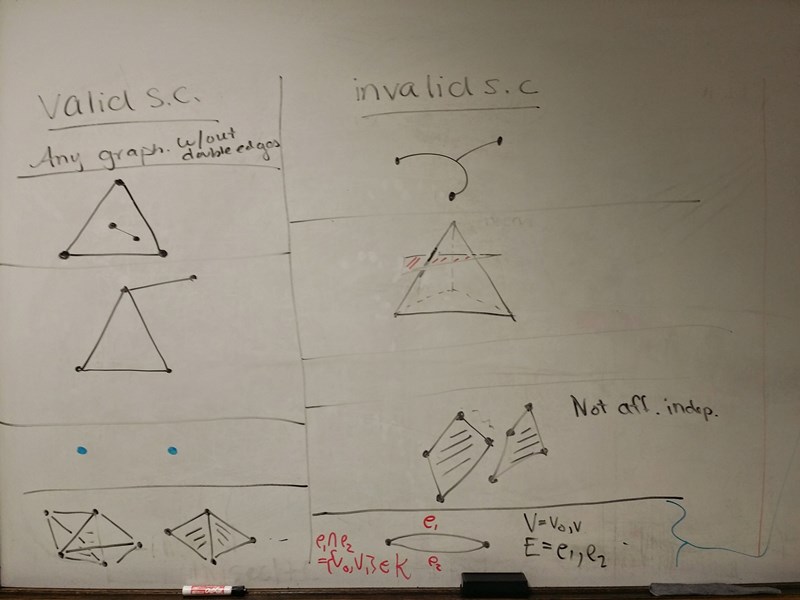 Valid s.c.
Any graph. w/out
double edges
invalid s.c
Not aff. indep.
e₁
e₁∩e₂
={V₀,V₁} ∈ K
e₂
V=V₀,V
E=e₁,e₂